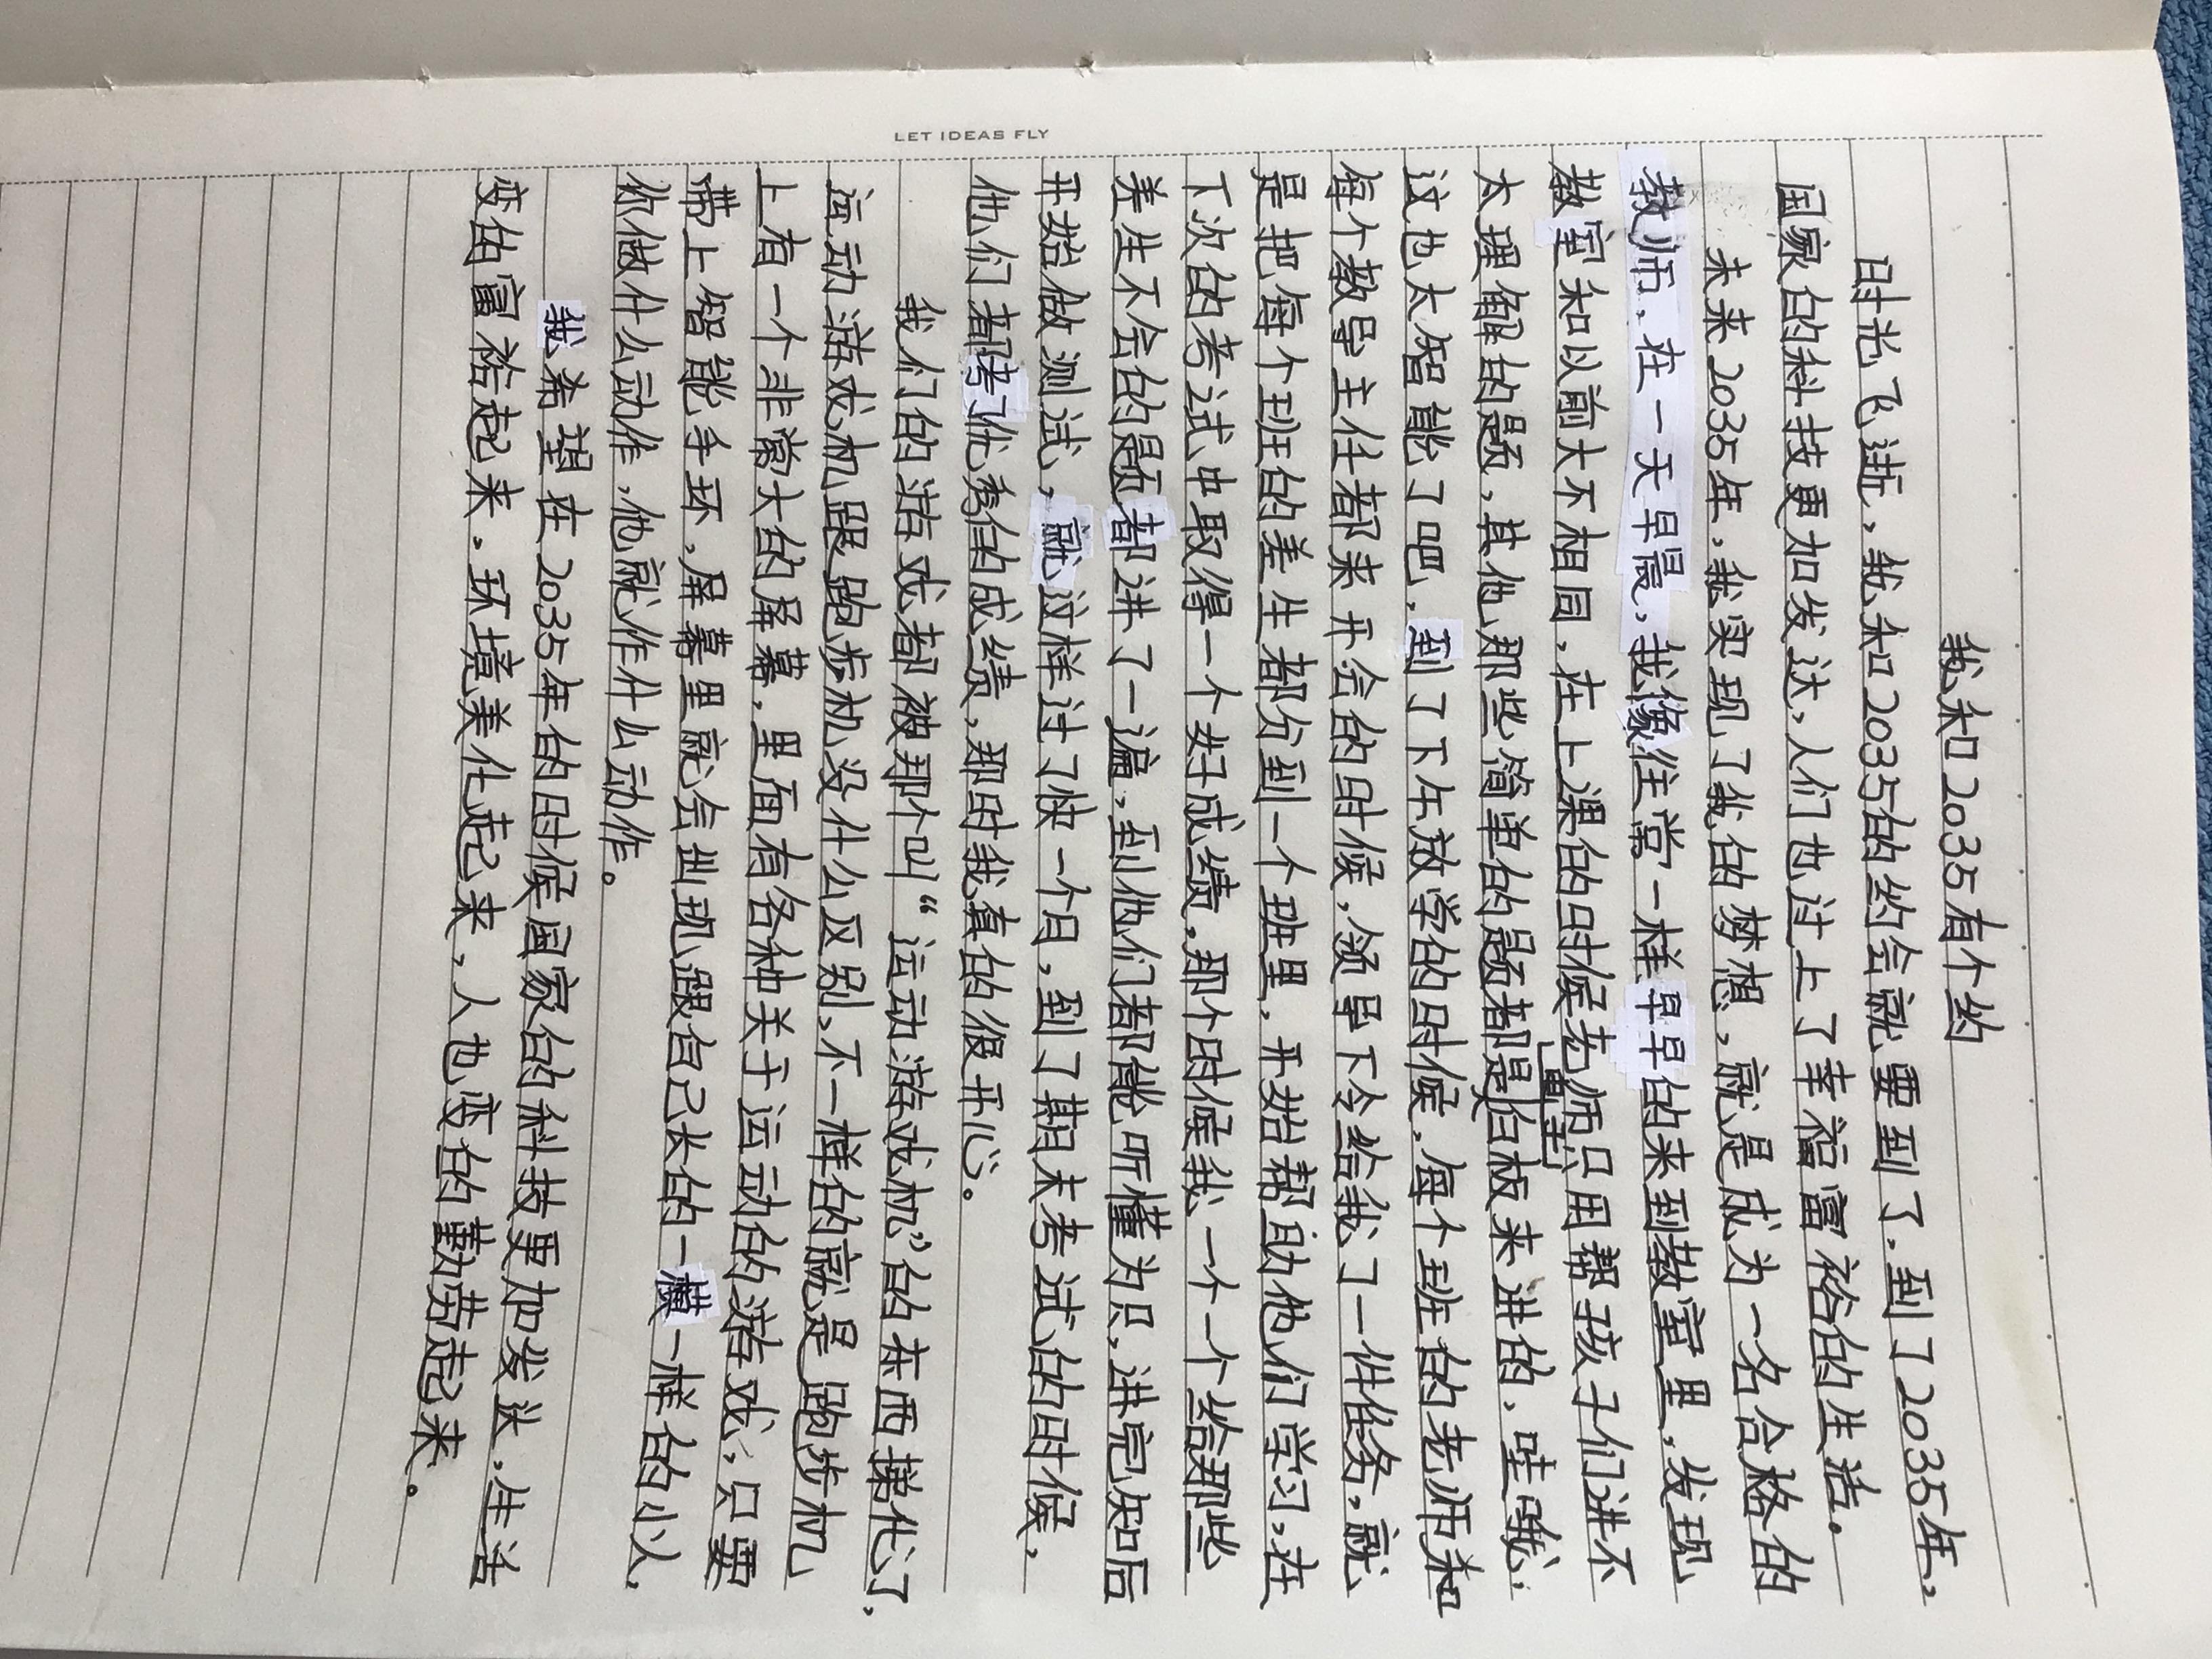 LET IDEAS FLY
我和2035有个约
时光飞逝，我和2035的约会就要到了。到了2035年，
国家的科技更加发达，人们也过上了幸福富裕的生活。
未来2035年，我实现了我的梦想，就是成为一名合格的
教师，在一天早晨，我像往常一样早早的来到教室里，发现
教室和以前大不相同，在上课的时候老师只用帮孩子们讲不
太理解的题，其他那些简单的题都是电白板来讲的，哇哦，
这也太智能了吧，到了下午放学的时候，每个班的老师和
每个教导主任都来开会的时候，领导下令给我了一件任务，就
是把每个班的差生都分到一个班里，开始帮助他们学习，在
下次的考试中取得一个好成绩，那个时候我一个一个给那些
差生不会的题都讲了一遍，到他们都能听懂为只，讲完知后
开始做测试，就这样过了快一个月，到了期末考试的时候，
他们都考了优秀的成绩，那时我真的很开心。
我们的游戏都被那个叫“运动游戏机”的东西替代了，
运动游戏机跟跑步机没什么区别，不一样的就是跑步机
上有一个非常大的屏幕，里面有各种关于运动的游戏，只要
带上智能手环，屏幕里就会出现跟自己长的一模一样的小人，
你做什么动作，他就作什么动作。
我希望在2035年的时候国家的科技更加发达，生活
变的富裕起来。环境美化起来，人也变的勤劳起来。